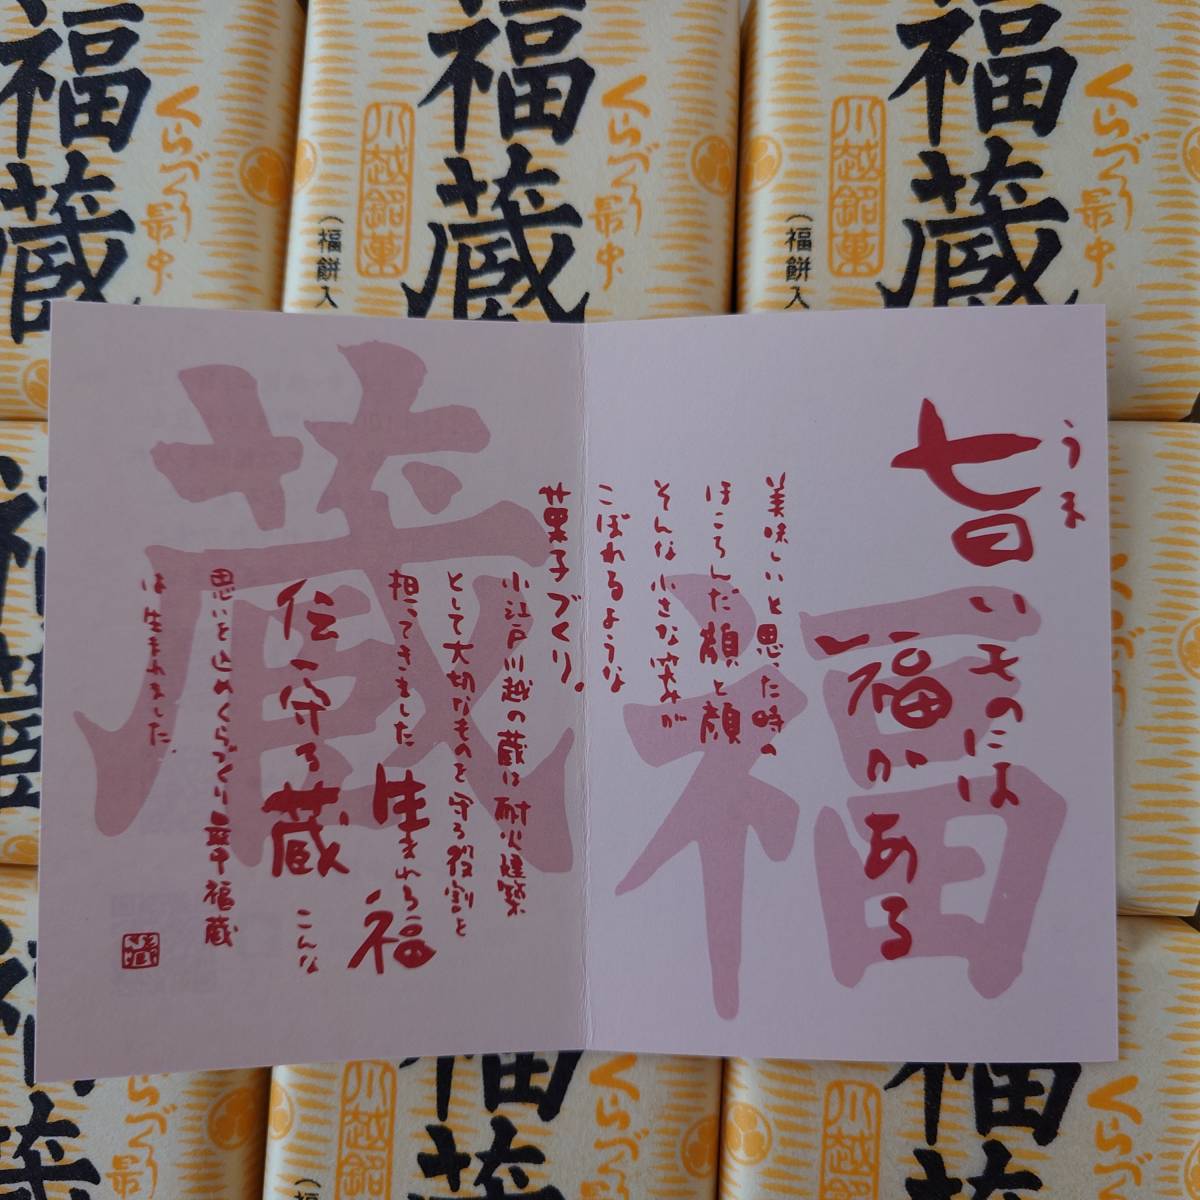 福蔵
くらづくり最中
川越銘菓
(福餅入
福蔵
くらづくり最中
川越銘菓
(福餅入
福蔵
くらづくり最中
うま
旨いものには
福がある
美味しいと思った時の
ほころんだ顔と顔
そんな小さな笑みが
こぼれるような
菓子づくり。
小江戸川越の蔵は耐火建築
として大切なものを守る役割を
担ってきました
生まれる福
伝守る蔵
こんな
思いを込めくらづくり最中福蔵
は生まれました。
福
蔵
蔵
川越銘菓
福蔵
くらづくり
川越銘菓
福蔵
くらづくり